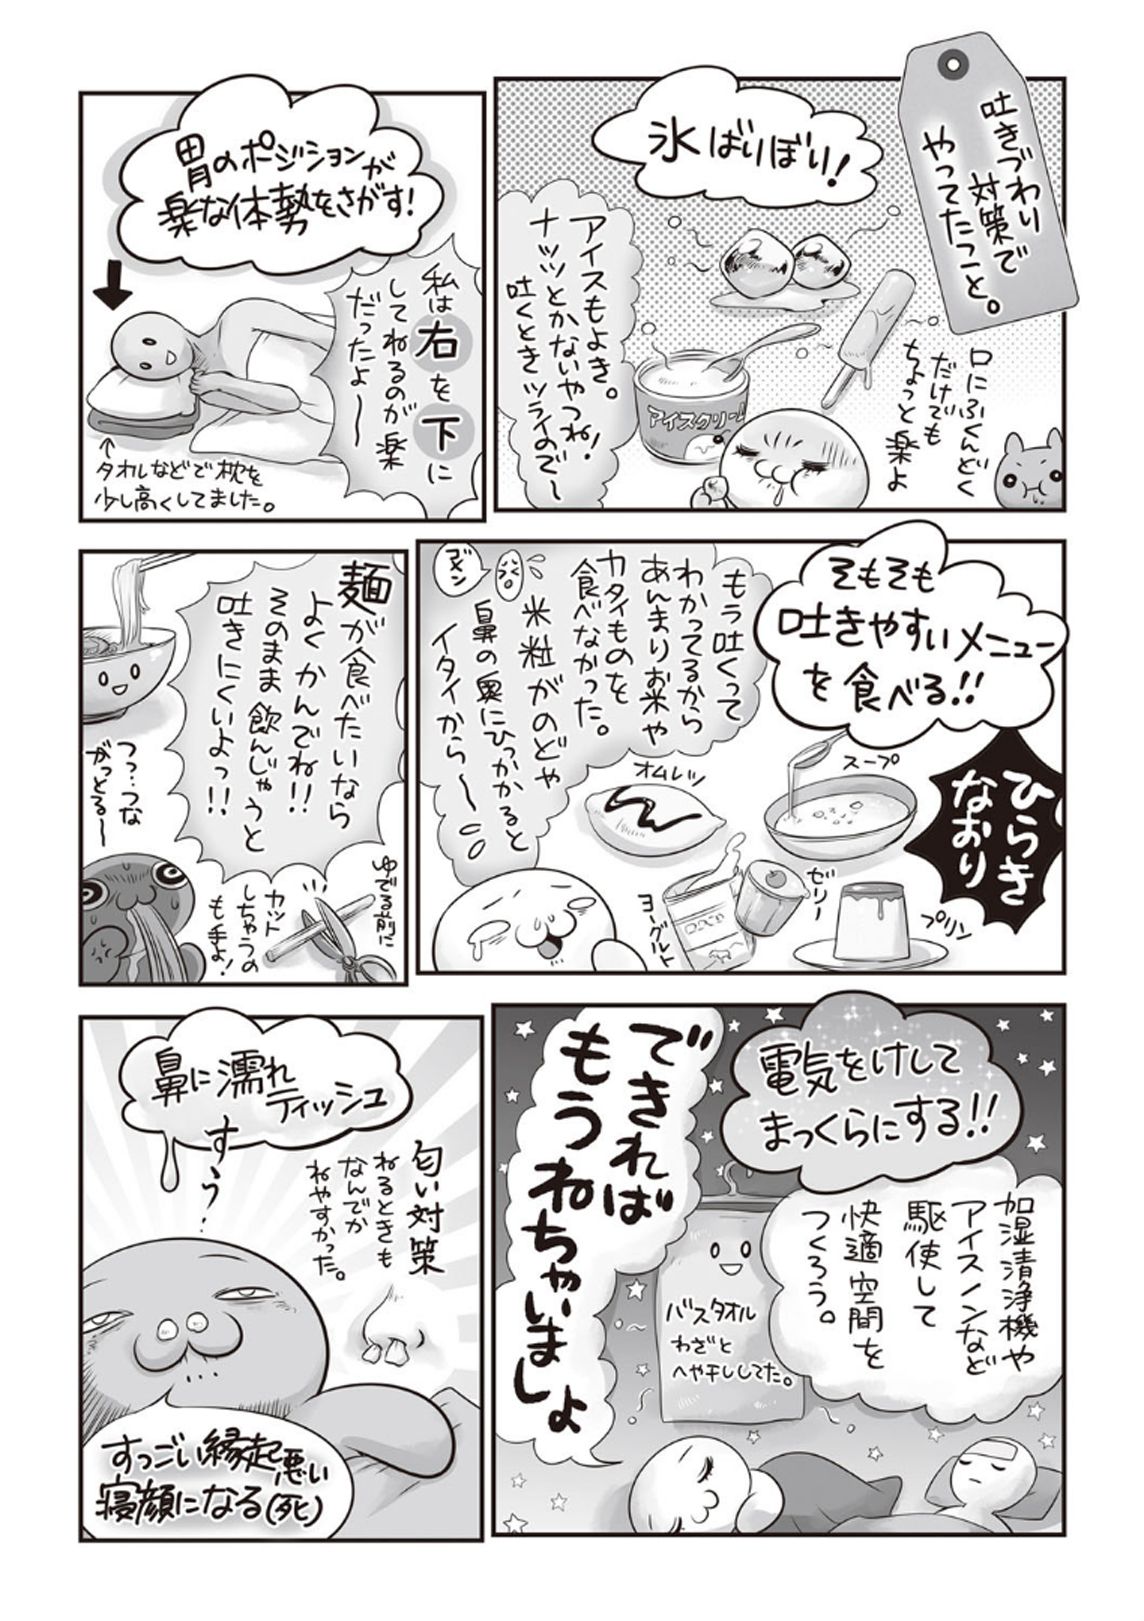 吐きづわり
対策で
やってたこと。
氷ばりぼり!
口にふくんどく
だけでも
ちょっと楽よ
アイスもよき。
ナッツとかないやつね!
吐くときツライので〜
アイスクリーム
胃のポジションが
楽な体勢をさがす!
私は右を下に
してねるのが楽
だったよ〜
↑
タオルなどで枕を
少し高くしてました。
そもそも
吐きやすいメニュー
を食べる!!
ひらき
なおり
もう吐くって
わかってるから
あんまりお米や
カタイものを
食べなかった。
米粒がのどや
鼻の奥にひっかかると
イタイから〜
ゴメン
スープ
オムレツ
ゼリー
ヨーグルト
プリン
麺が食べたいなら
よくかんでね!!
そのまま飲んじゃうと
吐きにくいよっ!!
ゆでる前に
カット
しちゃうの
も手よ!
つ…つな
がっとる〜
電気をけして
まっくらにする!!
加湿清浄機や
アイスノンなど
駆使して
快適空間を
つくろう。
バスタオル
わざと
へや干ししてた。
できれば
もうねちゃいましょ
鼻に濡れ
ティッシュ
すぅぅ…
匂い対策
ねるときも
なんでか
ねやすかった。
すっごい縁起悪い
寝顔になる(死)